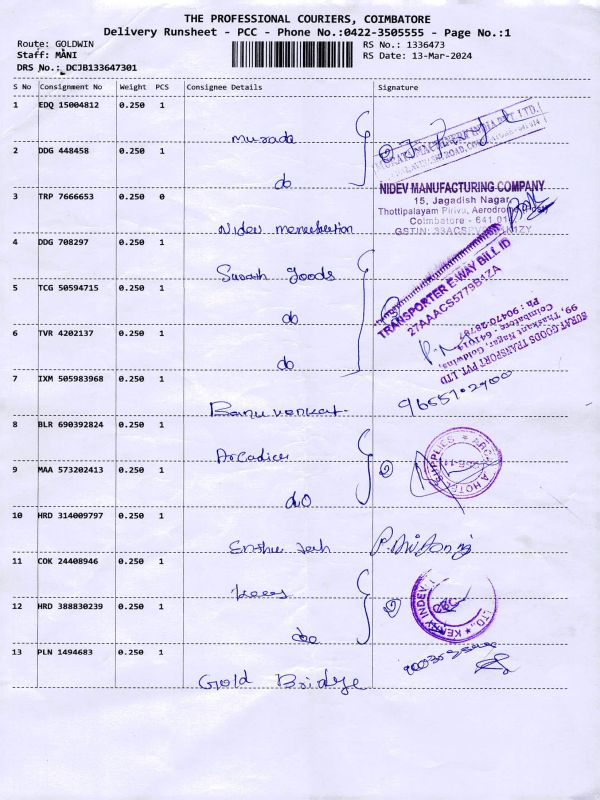 THE PROFESSIONAL COURIERS, COIMBATORE
Delivery Runsheet - PCC - Phone No.:0422-3505555 - Page No.:1
Route: GOLDWIN
Staff: MANI
DRS No.: DCJB133647301
RS No.: 1336473
RS Date: 13-Mar-2024
S No Consignment No Weight PCS Consignee Details Signature
1 EDQ 15004812 0.250 1
2 DDG 448458 0.250 1
do
3 TRP 7666653 0.250 0
Nidev
NIDEV MANUFACTURING COMPANY
15, Jagadish Nagar,
Thottipalayam Pirivu, Aerodrome
Coimbatore - 641 01
GSTIN: 33ACS
4 DDG 708297 0.250 1
goods
5 TCG 50594715 0.250 1
do
TRANSPORTER E-WAY BILL ID
27AAACS5779B1ZA
6 TVR 4202137 0.250 1
do
SURAT GOODS TRANSPORT PVT LTD
99, Thaskant Nagar, Goldwins,
Coimbatore - 641014
Ph : 90470-28787
7 IXM 505983968 0.250 1
Banu venkat
8 BLR 690392824 0.250 1
9 MAA 573202413 0.250 1
do
SUPPLIES
10 HRD 314009797 0.250 1
11 COK 24408946 0.250 1
12 HRD 388830239 0.250 1
do
13 PLN 1494683 0.250 1
Gold Bridge